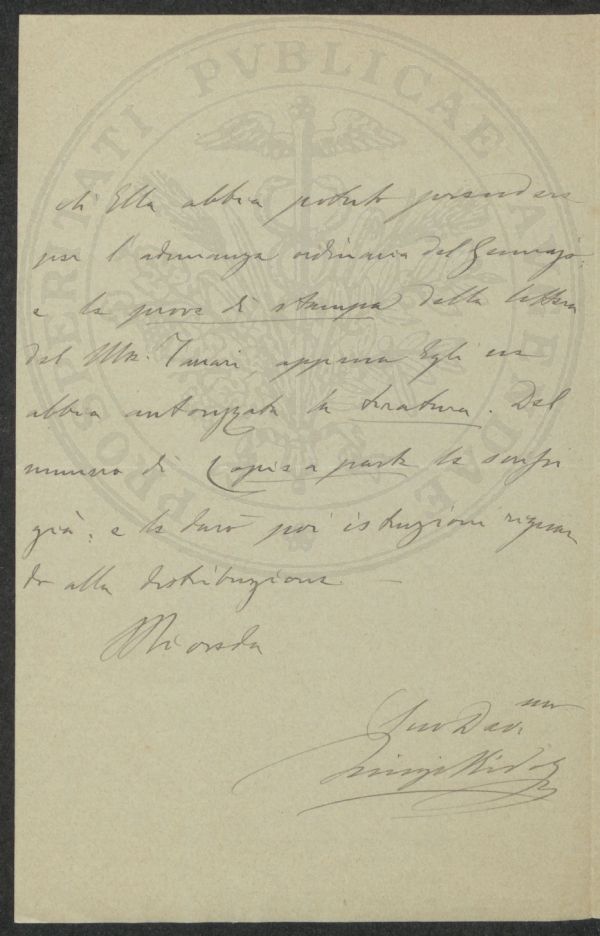 PROSPERITATI PVBLICAE AVGENDAE
ch'Ella abbia potuto
per l'adunanza ordinaria del Gennajo:
e le prove di stampa della lettera
del Mse. Tanari, appena Egli ne
abbia autorizzata la tiratura. Del
numero di Copie a parte le scrissi
già: e le darò poi istruzioni riguar
do alla distribuzione. —
Mi creda
Suo Dev.mo
Luigi